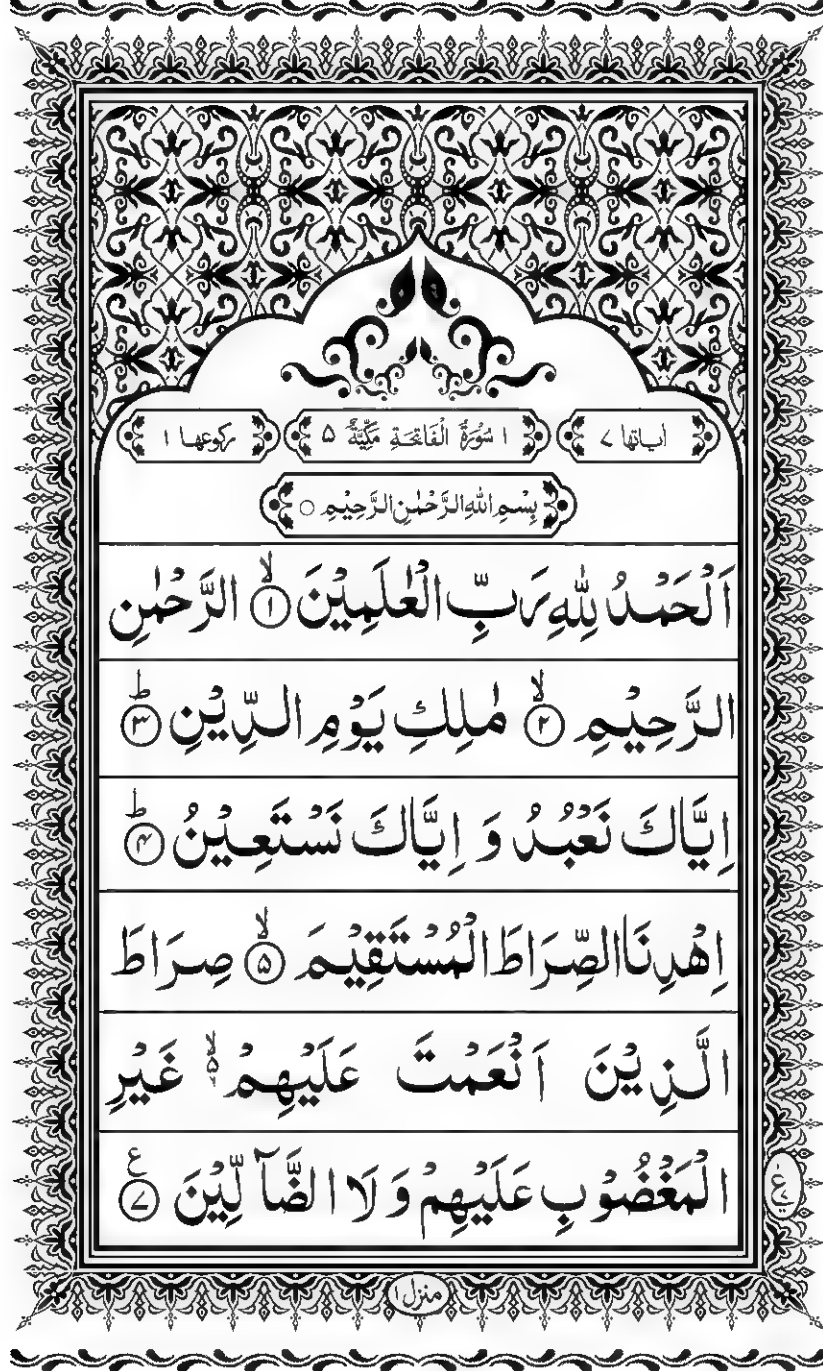 اٰیاتها ۷ ۱ سُوْرَةُ الْفَاتِحَةِ مَكِّیَّةٌ ۵ ركوعها ۱
بِسْمِ اللّٰهِ الرَّحْمٰنِ الرَّحِیْمِ ○
اَلْحَمْدُ لِلّٰهِ رَبِّ الْعٰلَمِیْنَۙ۝۱ الرَّحْمٰنِ
الرَّحِیْمِۙ۝۲ مٰلِكِ یَوْمِ الدِّیْنِؕ۝۳
اِیَّاكَ نَعْبُدُ وَ اِیَّاكَ نَسْتَعِیْنُؕ۝۴
اِهْدِنَا الصِّرَاطَ الْمُسْتَقِیْمَۙ۝۵ صِرَاطَ
الَّذِیْنَ اَنْعَمْتَ عَلَیْهِمْ ۙ۬ۦ غَیْرِ
الْمَغْضُوْبِ عَلَیْهِمْ وَ لَا الضَّآلِّیْنَ۠۝۷
منزل ۱